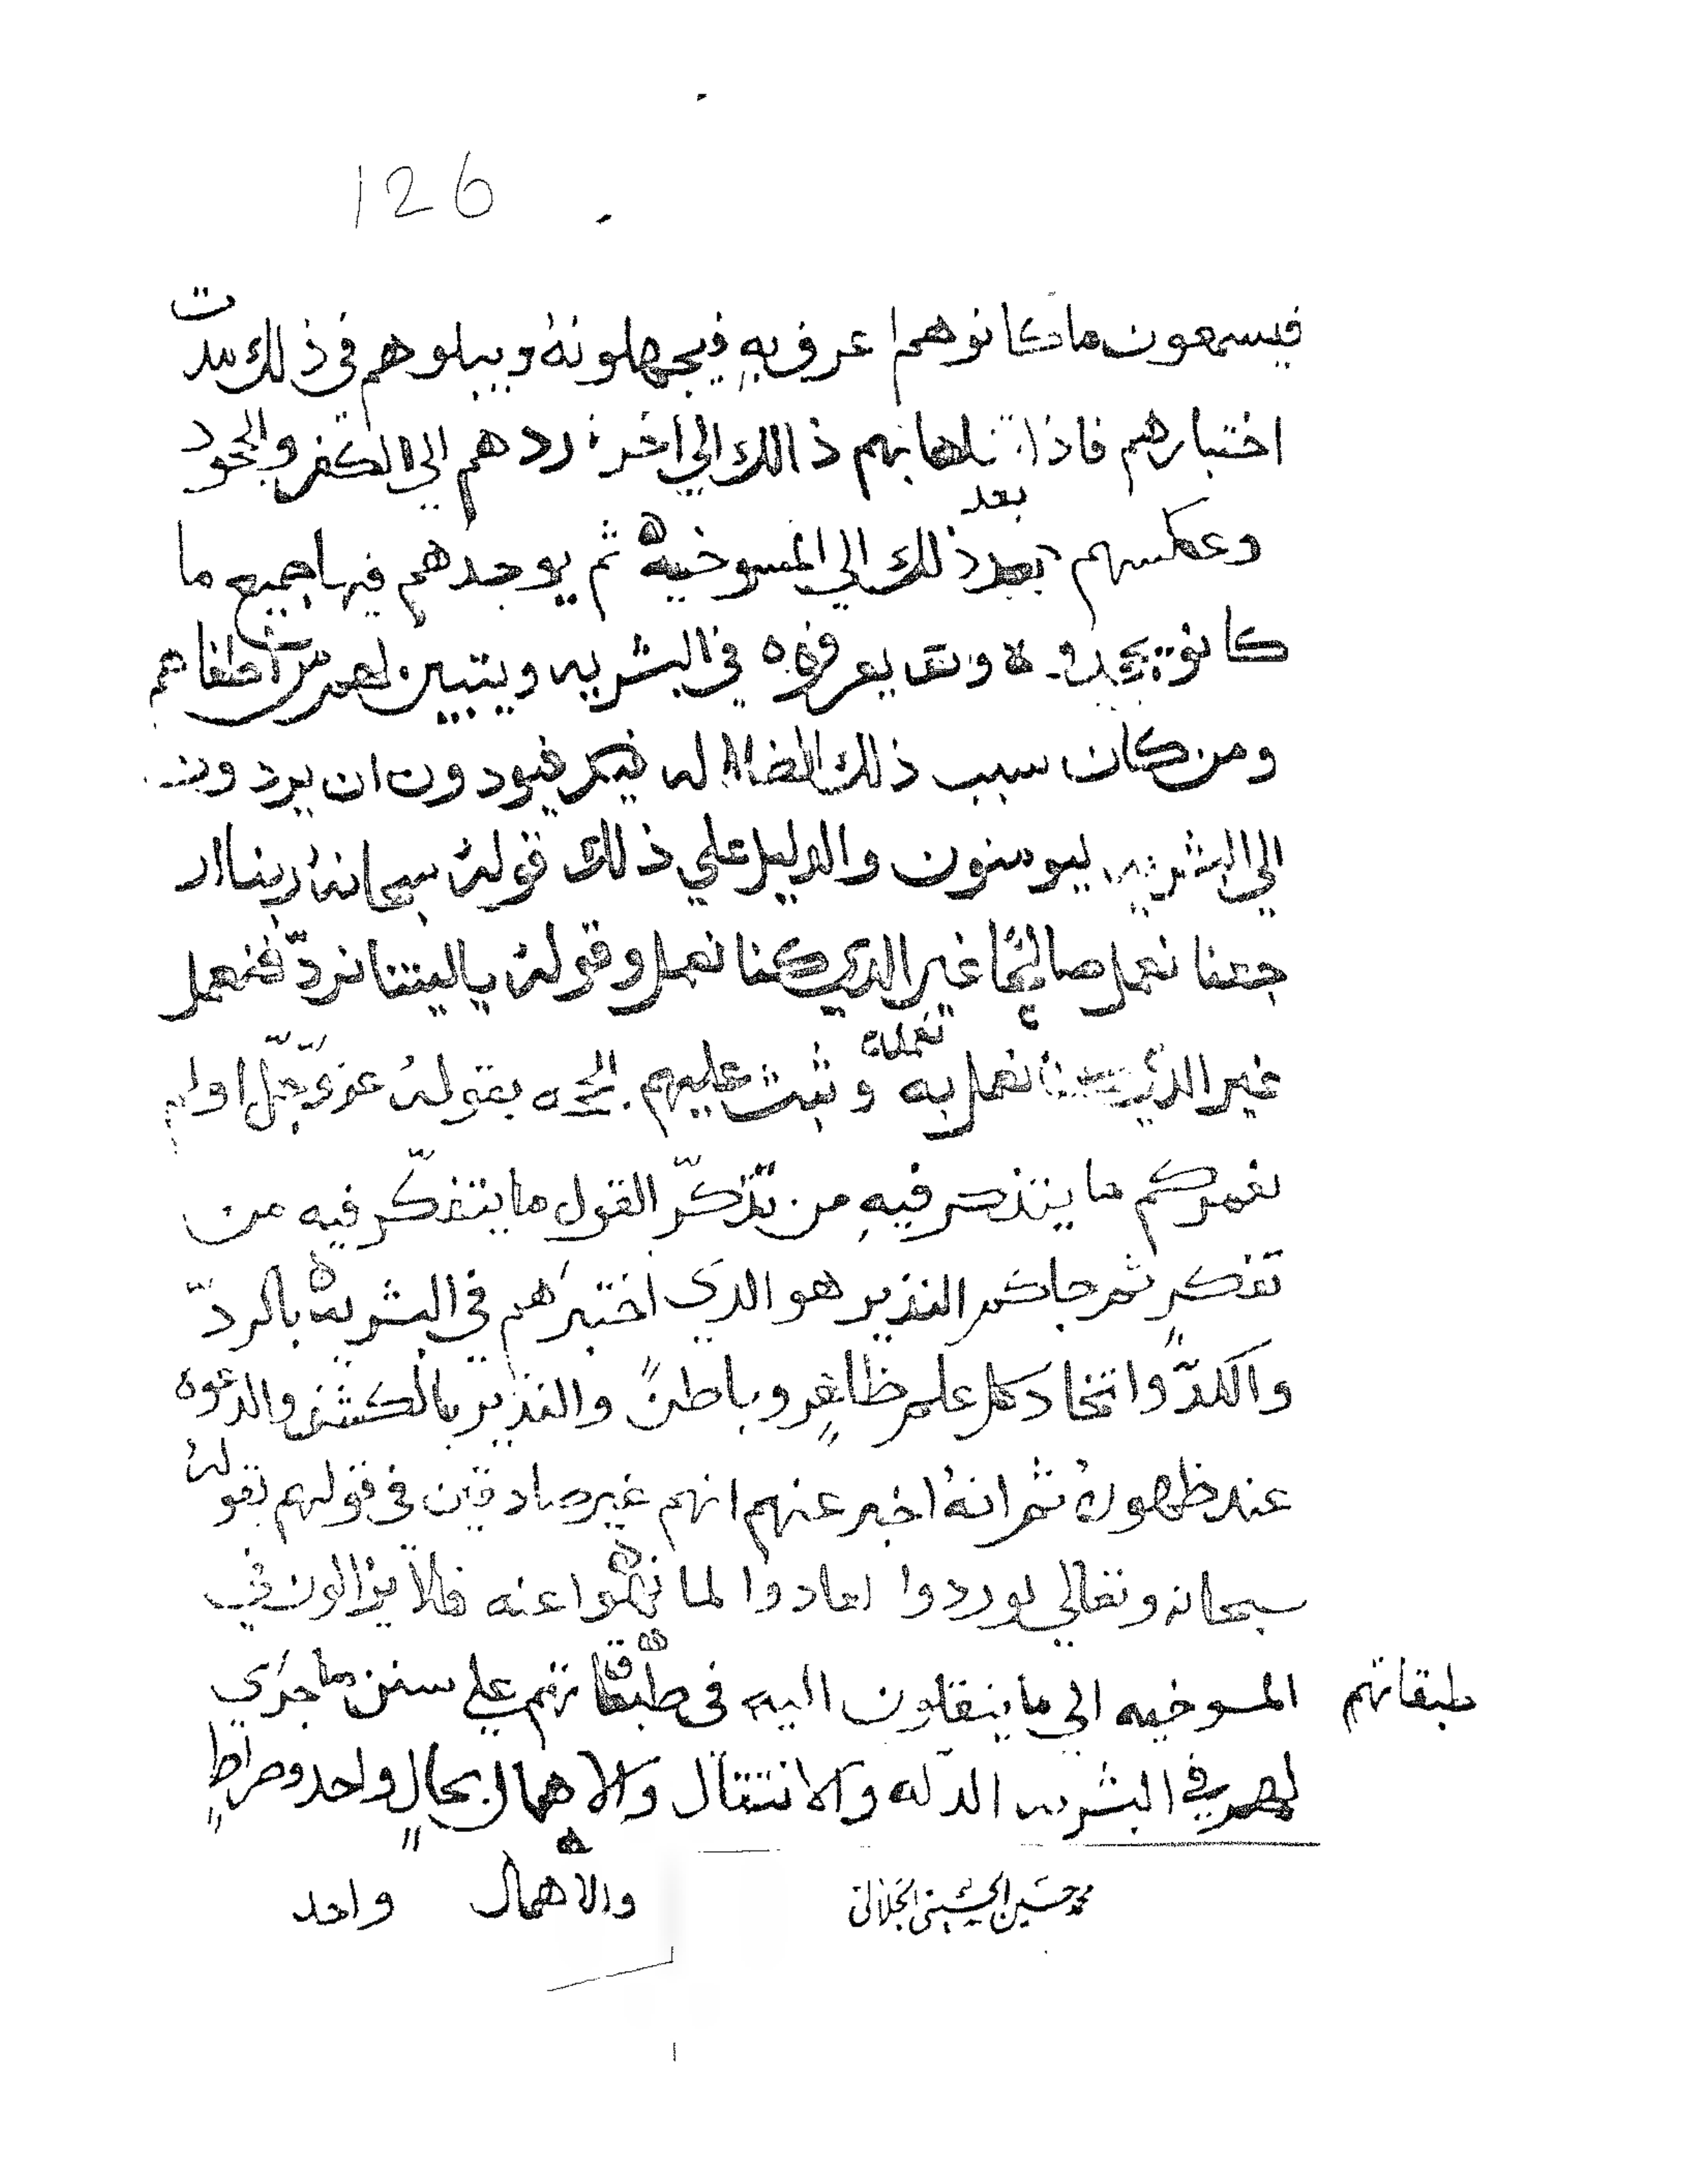 126
فيسمعون ما كانوهم اعرف به فيجهلونه ويبلوهم في ذلك بمدت
اختبارهم فاذا تناها بهم ذالك الي اخره ردهم الي الكفر والجحود
وعكسهم بعد ذلك الي المسوخيه ثم يوجدهم فيها جميع ما
كانو يجحدوه يعرفوه في البشريه ويتبين لهم من اطغاهم
ومن كان سبب ذلك الضلاله فيكم فيودون ان يردون
الي البشريه ليومنون والدليل علي ذلك قوله سبحانه ربنا ار
جعنا نعمل صالحًا غير الذي كنا نعمل وقوله ياليتنا نردّ فنعمل
غير الذي كنا نعمل به نعمله وثبت عليهم الحجه بقوله عزّ وجلّ اولم
نعمركم ما يتذكر فيه من تذكّر القول ما يتفكّر فيه من
تفكر ثم جاكم النذير هو الذي اختبرهم في البشريه بالردّ
والكدّ واتخاد كل علم ظاهرٍ وباطنً والنذير بالكشف والدعوه
عند ظهوره ثم انه اخبر عنهم انهم غير صادقين في قولهم بقوله
سبحانه وتعالي لوردوا لعادوا لما نهوا عنه فلا يزالون في
المسوخيه الي ما ينقلون اليه في طبقاتهم علي سنن ما جري
طبقاتهم
لهم في البشريه الدله والانتقال والاهمال بحالٍ واحد وصراطٍ
محمد حسين الحسيني الجلالي
والاهمال واحد